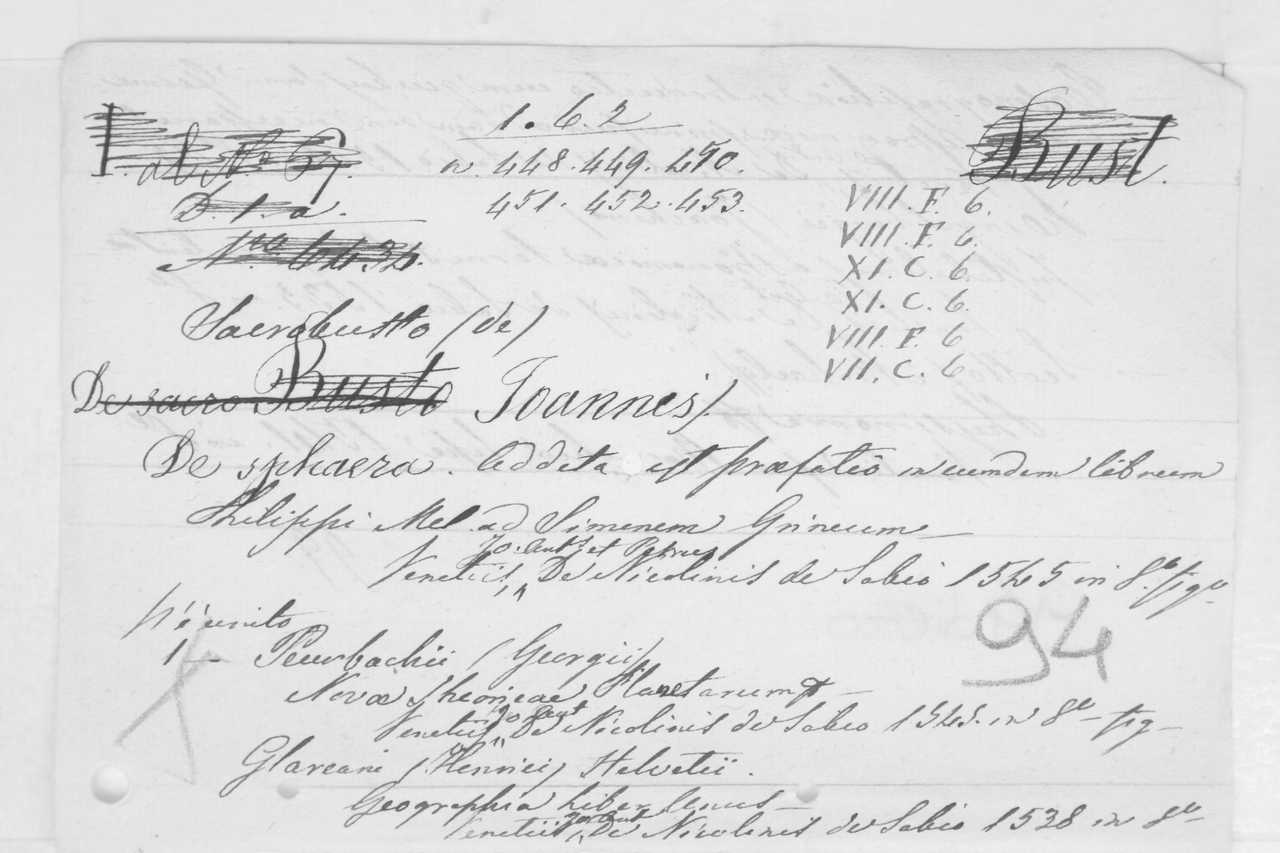 1. 6. 2
al Nº 67.
n. 448. 449. 450.
Bust.
D. 1. a.
451. 452. 453.
VIII. F. 6.
VIII. F. 6.
XI. C. 6.
XI. C. 6.
VIII. F. 6
VII. C. 6
Sacrobusto (de)
De sacro Busto Joannis).
De sphaera. Addita est praefatio in eumdem librum
Philippi Mel. ad Simenem Grineum –
Jo. Ant. et Petrus
Venetiis, De Nicolinis de Sabio 1545 in 8º fig.
V'è unito
94
1 – Peurbachii (Georgii)
Novae theoricae Planetarum –
Jo Ant
Venetiis, De Nicolinis de Sabio 1545. in 8º – fig –
Glareani (Henrici) Helvetii.
Geographia liber unus –
Venetiis, De Nicolinis de Sabio 1538 in 8º –